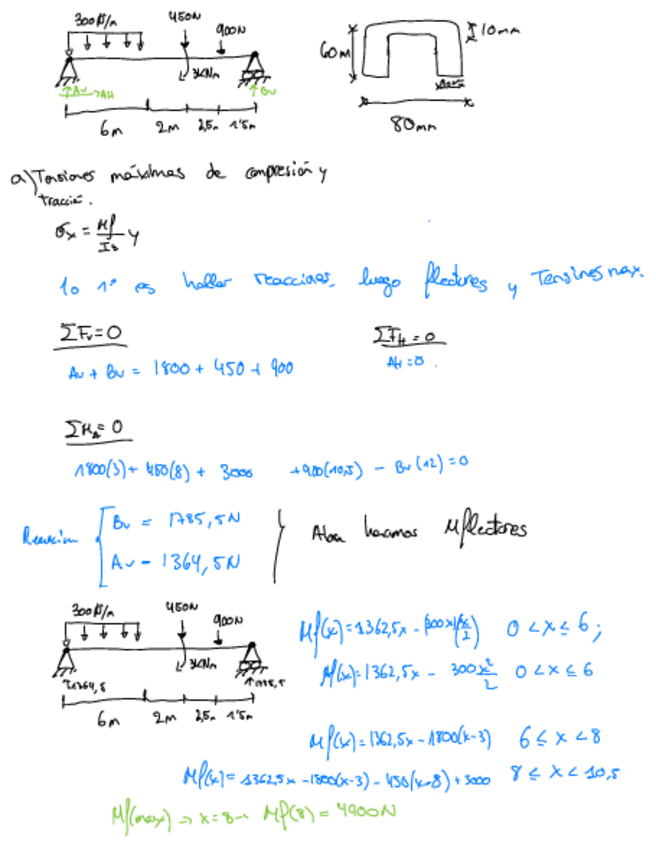 300N/m 450N 900N
3KNm
Av →AH Bv
6m 2m 2,5m 1'5m
60m 10mm
80mm
a) Tensiones máximas de compresión y
tracció.
σx = Mf/Iz y
lo 1º es hallar reacciones, luego flectores y Tensines max.
ΣFv=0 ΣFH=0
Av + Bv = 1800 + 450 + 900 AH=0.
ΣMA=0
1800(3) + 450(8) + 3000 +900(10,5) - Bv(12)=0
Reacción { Bv = 1785,5N
Av - 1364,5N } Ahora hacemos Mflectores
300N/m 450N 900N
3KNm
↑1364,5 ↑1785,5
6m 2m 2,5m 1'5m
Mf(x)=1362,5x - (300x)(x/2) 0<x≤6;
Mf(x)=1362,5x - 300x²/2 0<x≤6
Mf(x)=1362,5x-1800(x-3) 6≤x<8
Mf(x)=1362,5x-1800(x-3)-450(x-8)+3000 8≤x<10,5
Mf(max) → x=8 → Mf(8) = 4900N